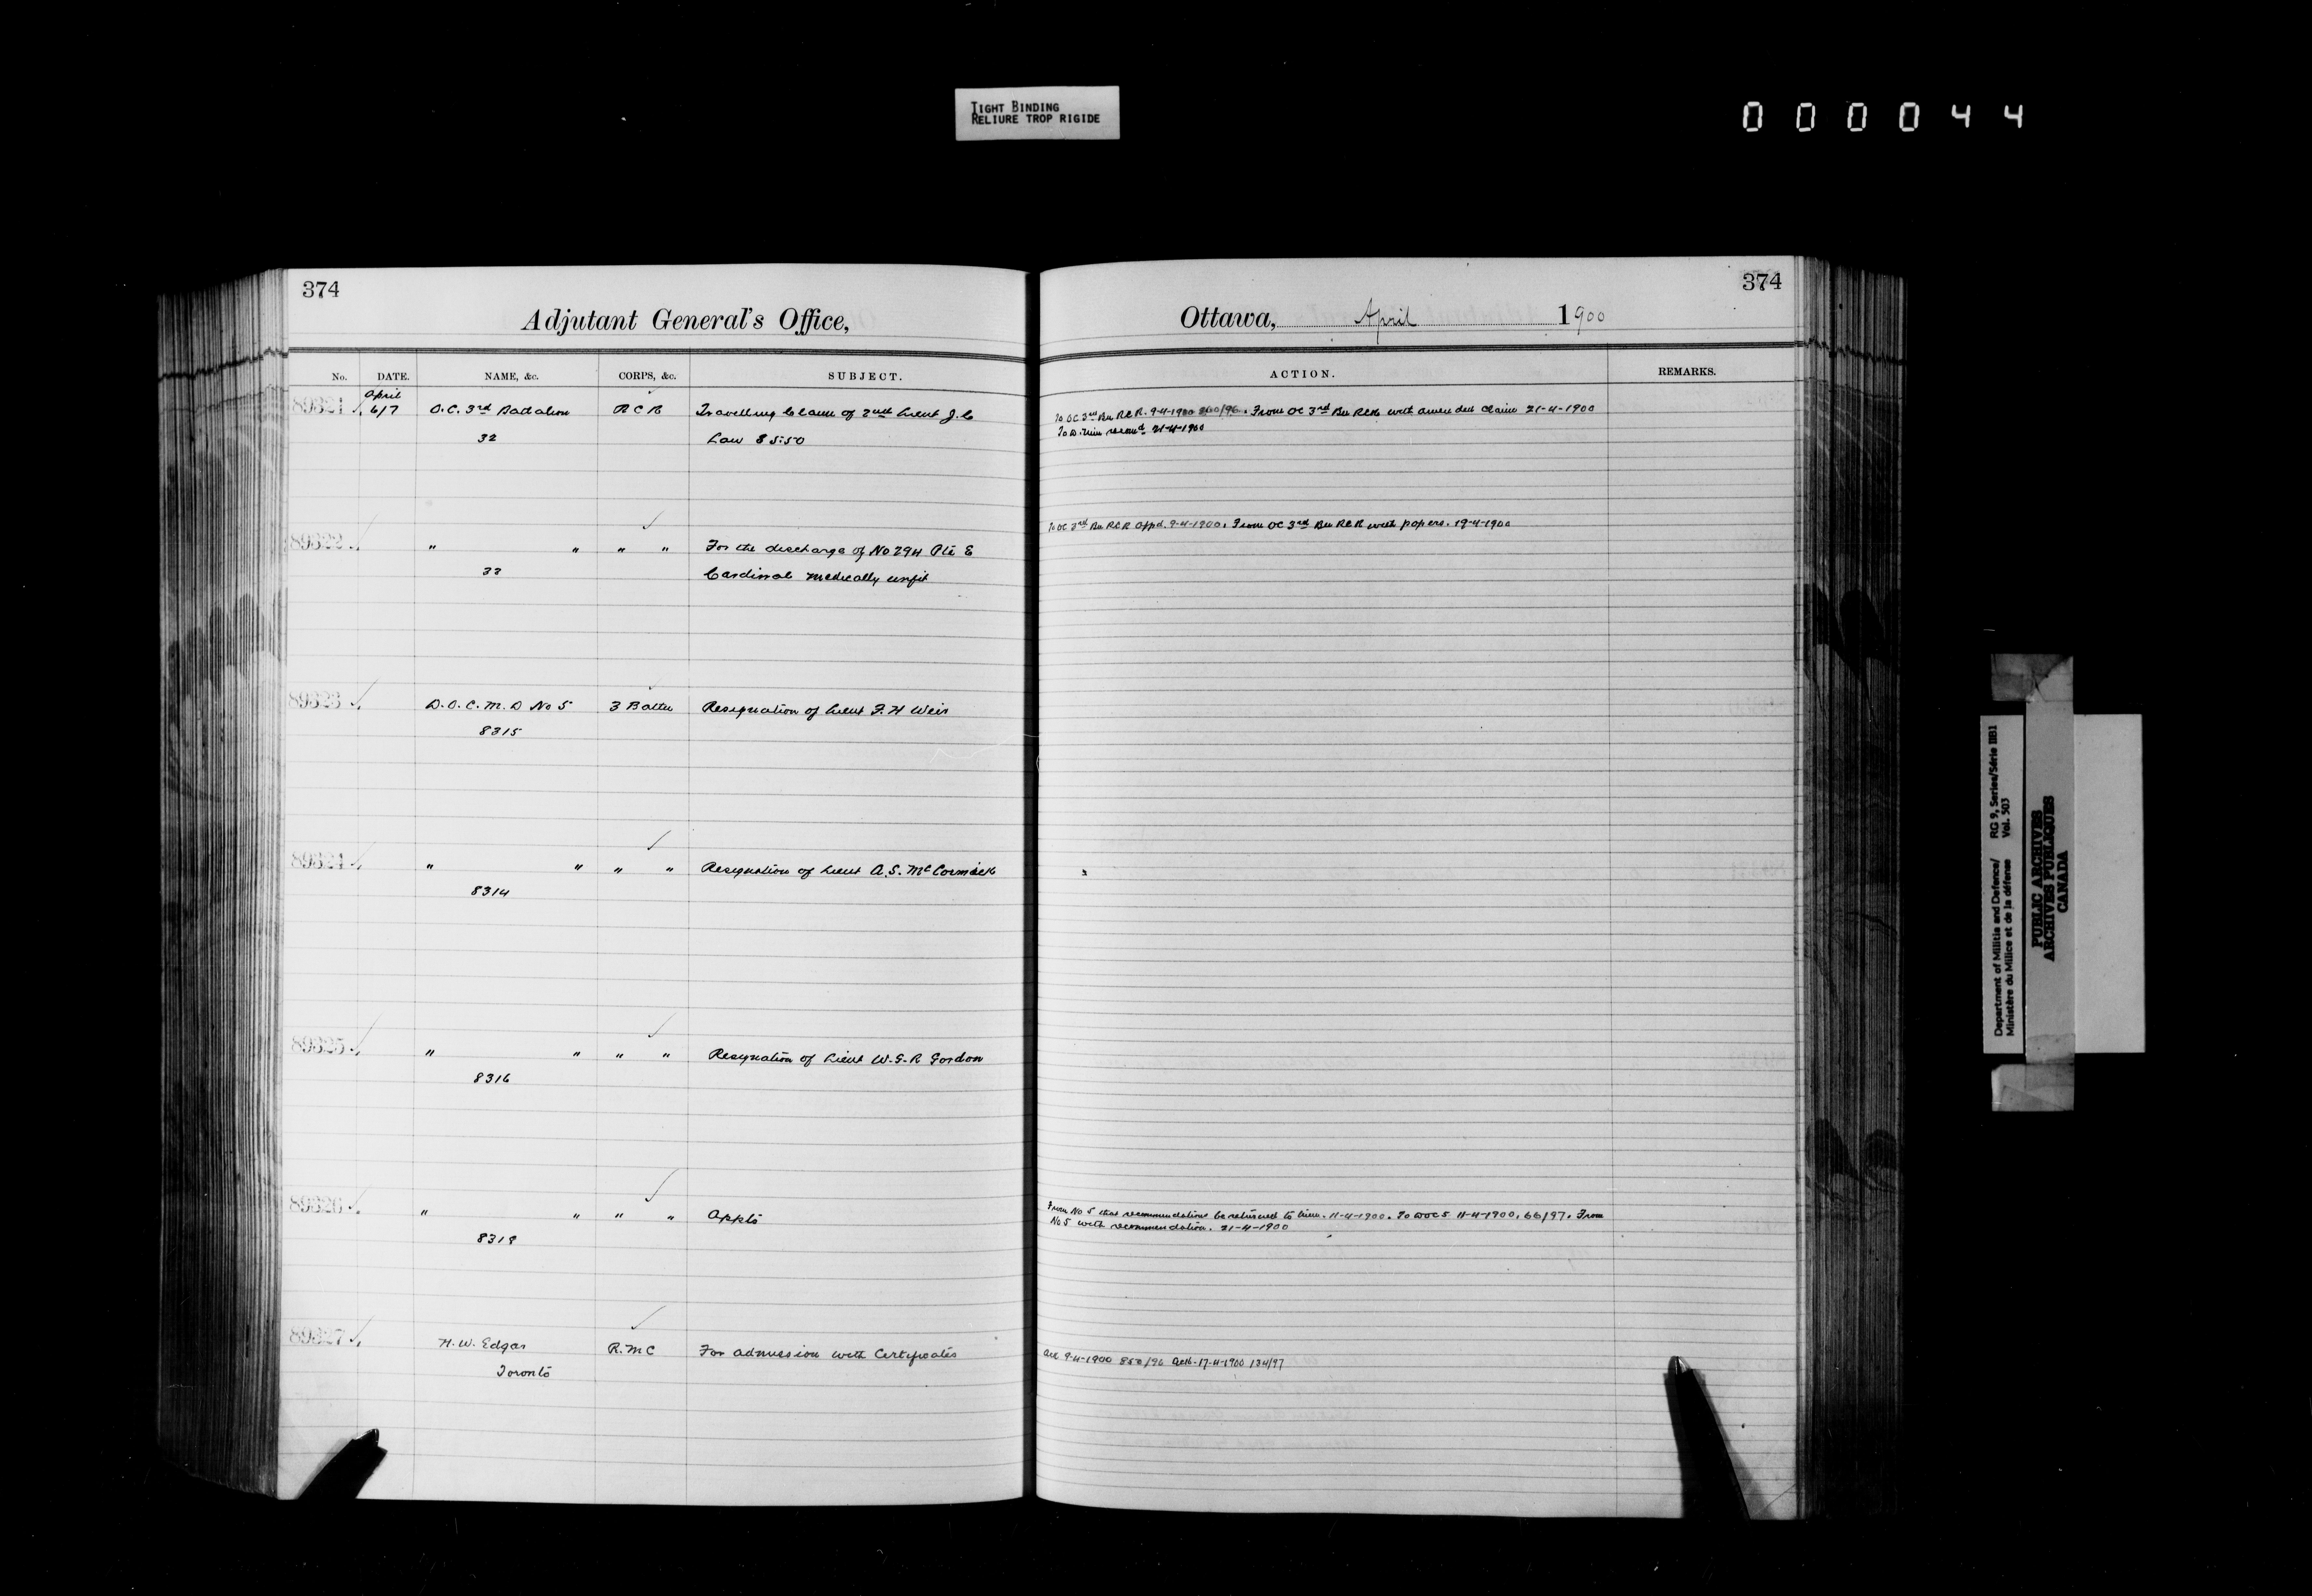 TIGHT BINDING
RELIURE TROP RIGIDE
000044
374
Adjutant General's Office,
No. DATE. NAME, &c. CORPS, &c. SUBJECT.
April
89321 6/7 O.C. 3rd Battalion R C R Travelling Claim of 2nd Lieut J. C
32 Law $5.50
89322 " " " " For the discharge of No 294 Pte E
33 Cardinal medically unfit
89323 D.O.C. M.D No 5 3 Batln Resignation of Lieut F. H Weir
8315
89324 " " " " Resignation of Lieut A. S. McCormick
8314
89325 " " " " Resignation of Lieut W. G. R Gordon
8316
89326 " " " " Appts
8318
89327 H. W. Edgar R. M C For admission with Certificates
Toronto
374
Ottawa, April 1900
ACTION. REMARKS.
To OC 3rd Bn RCR. 9-4-1900 /96. From OC 3rd Bn RCR with amended claim 21-4-1900
To D. Min 21-4-1900
To OC 3rd Bn RCR appd. 9-4-1900. From OC 3rd Bn RCR with papers. 19-4-1900
From No 5 that recommendations be returned to him. 11-4-1900. To DOC 5 11-4-1900. 66/97. From
No 5 with recommendation. 21-4-1900
Ack 9-4-1900 /96 Ack. 17-4-1900 134/97
Department of Militia and Defence/ RG 9, Series/Série IIB1
Ministère du Milice et de la défense Vol. 503
PUBLIC ARCHIVES
ARCHIVES PUBLIQUES
CANADA